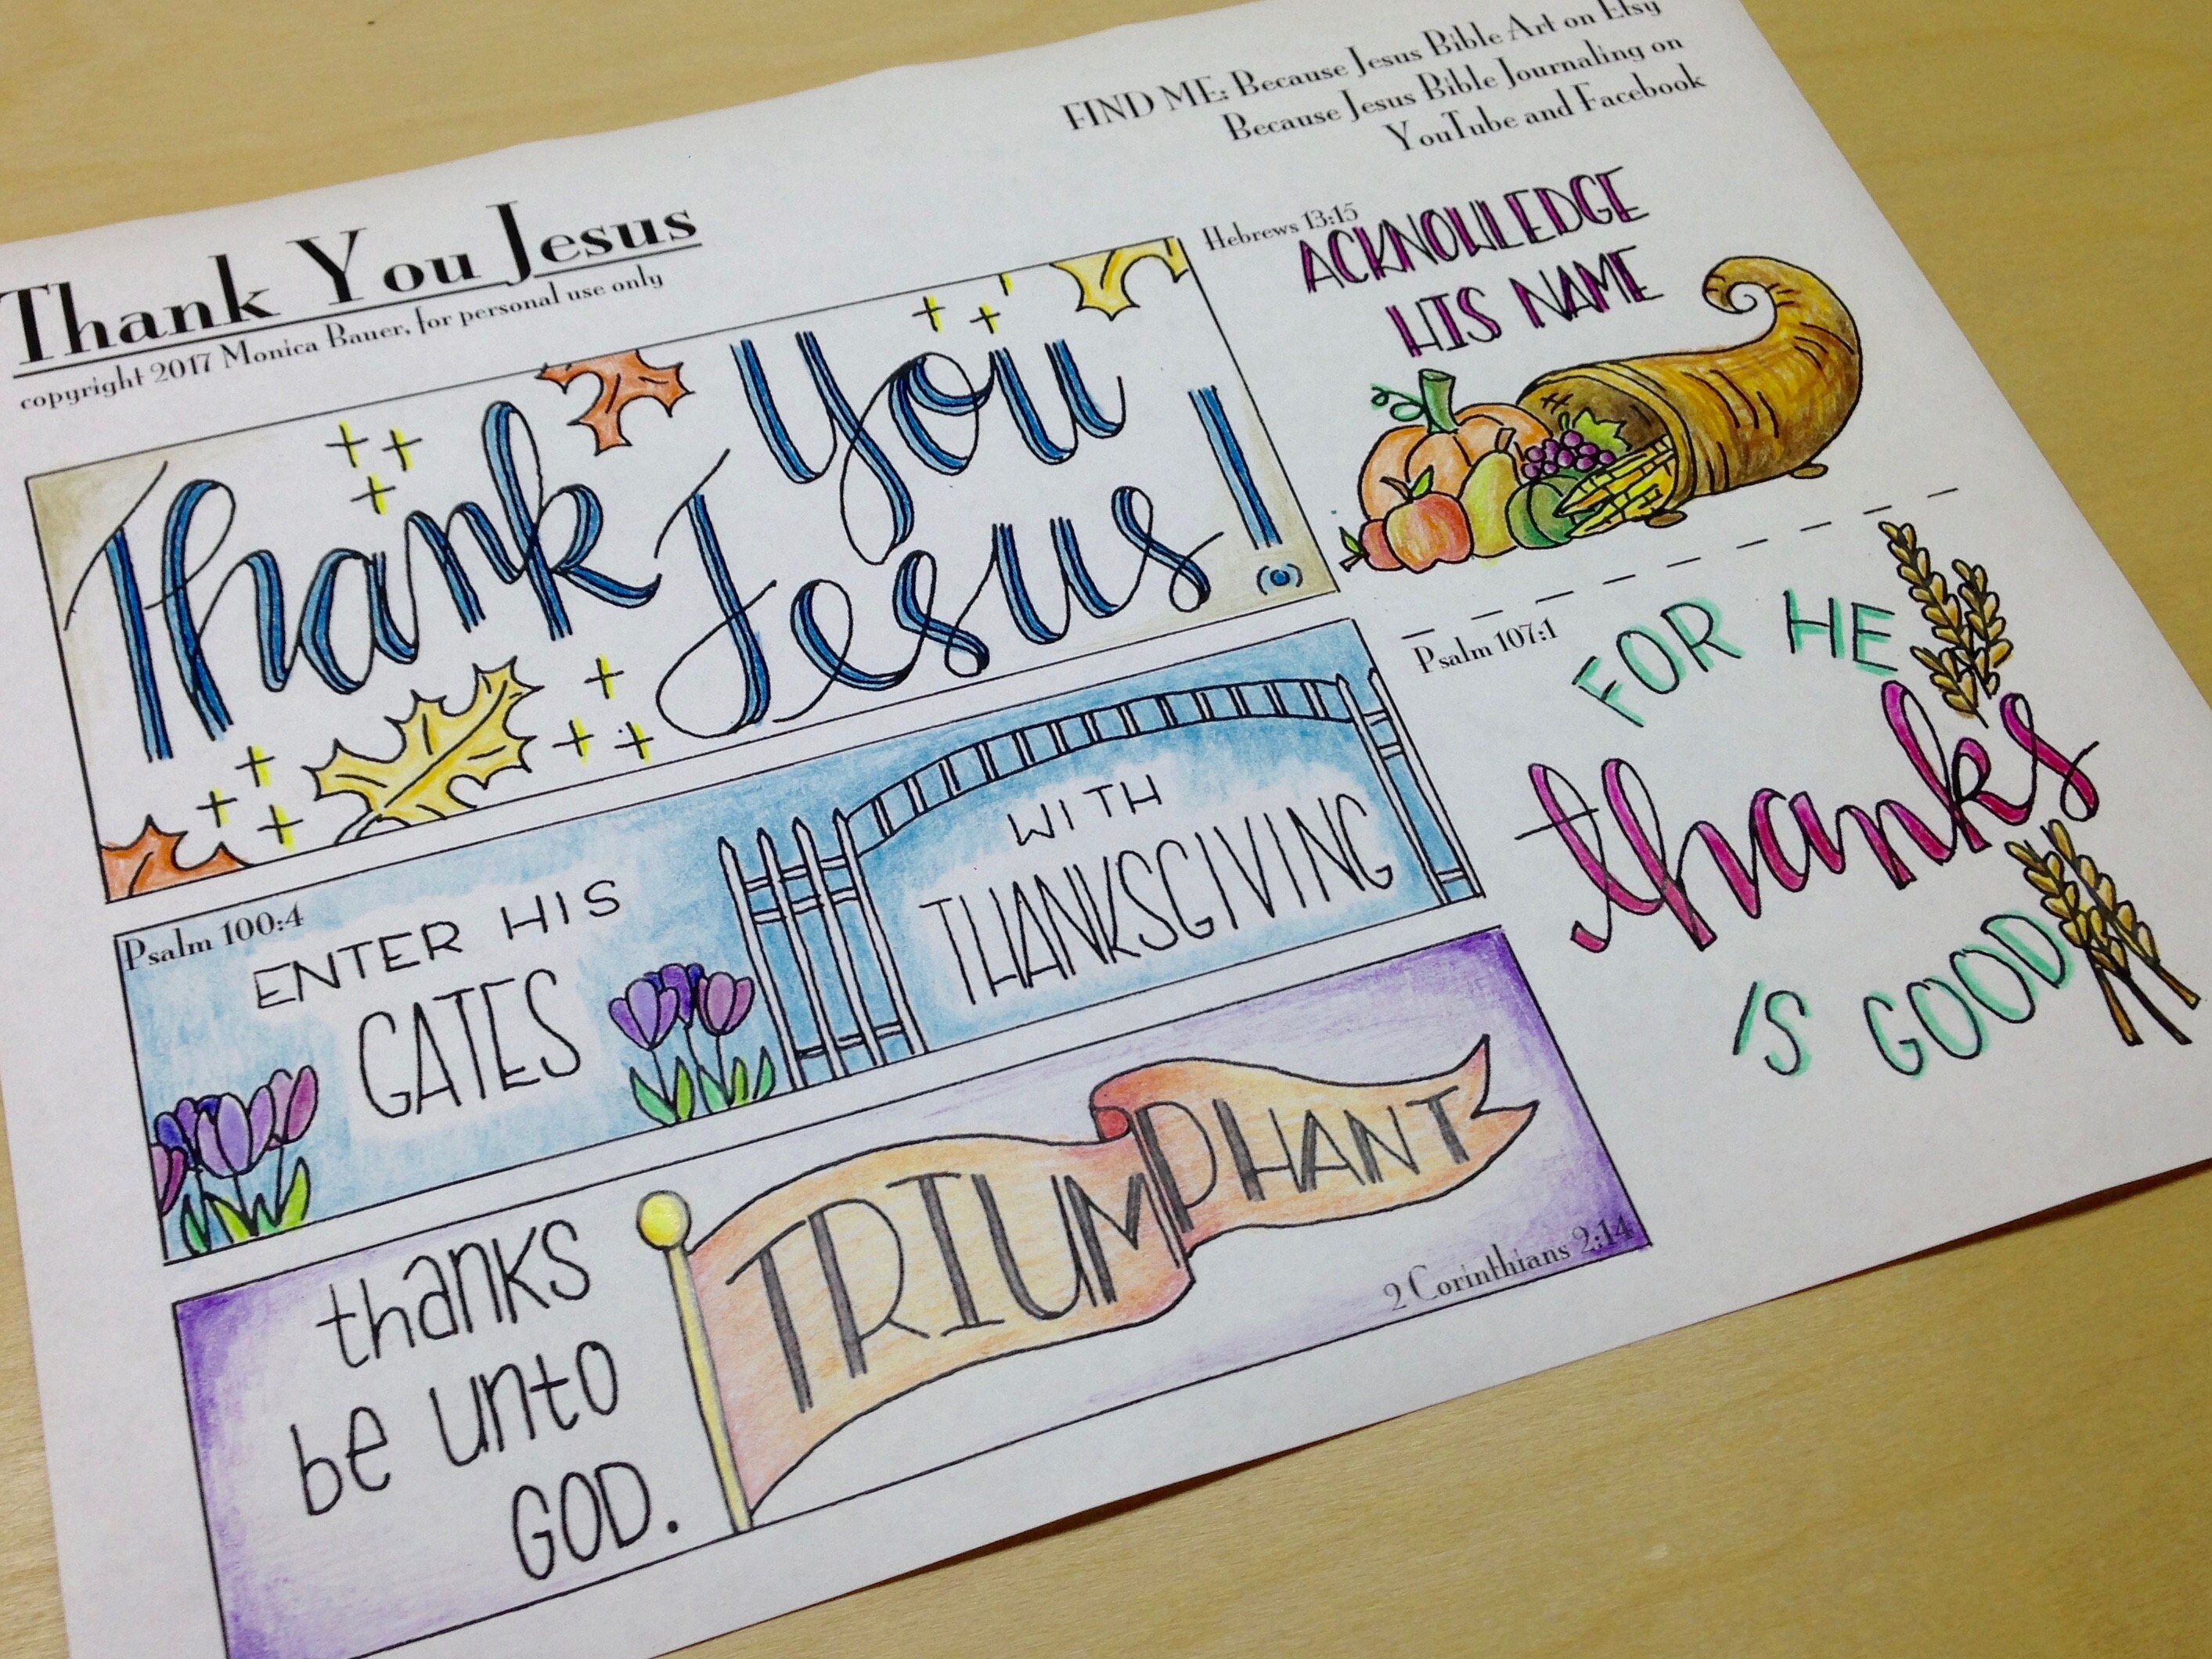 Thank You Jesus
copyright 2017 Monica Bauer, for personal use only
FIND ME: Because Jesus Bible Art on Etsy
Because Jesus Bible Journaling on
YouTube and Facebook
Thank You
Jesus!
Psalm 100:4
ENTER HIS
GATES
WITH
THANKSGIVING
thanks
be unto
GOD.
TRIUMPHANT
2 Corinthians 2:14
Hebrews 13:15
ACKNOWLEDGE
HIS NAME
Psalm 107:1
FOR HE
thanks
IS GOOD